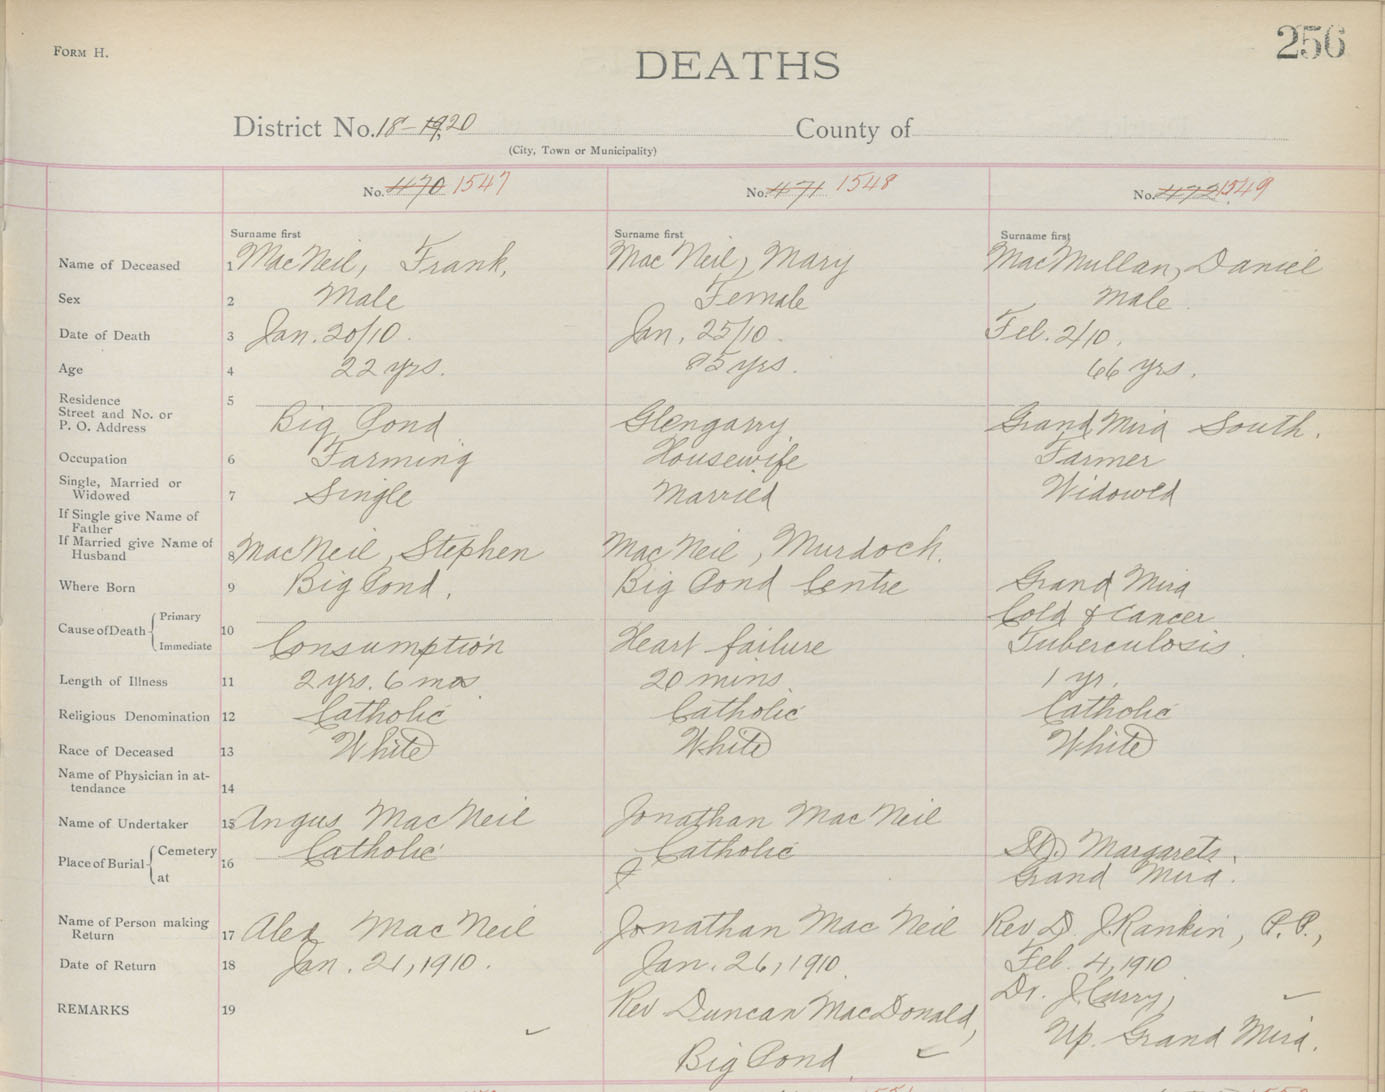 FORM H.
256
DEATHS
District No. 18-19,20 County of
(City, Town or Municipality)
No. 470 1547 No. 471 1548 No. 472 1549
Surname first Surname first Surname first
Name of Deceased 1 MacNeil, Frank, MacNeil, Mary MacMullan, Daniel
Sex 2 Male Female Male
Date of Death 3 Jan. 20/10. Jan. 25/10. Feb. 2/10.
Age 4 22 yrs. 85 yrs. 66 yrs.
Residence 5
Street and No. or
P. O. Address Big Pond Glengarry Grand Mira South.
Occupation 6 Farming Housewife Farmer
Single, Married or
Widowed 7 Single Married Widowed
If Single give Name of
Father
If Married give Name of
Husband 8 MacNeil, Stephen MacNeil, Murdoch.
Where Born 9 Big Pond, Big Pond Centre Grand Mira
Cause of Death Primary Cold & Cancer
10 Immediate Consumption Heart failure Tuberculosis.
Length of Illness 11 2 yrs. 6 mos 20 mins. 1 yr.
Religious Denomination 12 Catholic Catholic Catholic
Race of Deceased 13 White White White
Name of Physician in at-
tendance 14
Name of Undertaker 15 Angus MacNeil Jonathan MacNeil
Place of Burial Cemetery 16 Catholic Catholic St. Margarets,
at Grand Mira.
Name of Person making
Return 17 Alex MacNeil Jonathan MacNeil Rev D. J. Rankin, P.P.,
Date of Return 18 Jan. 21, 1910. Jan. 26, 1910. Feb. 4, 1910
REMARKS 19 Rev Duncan MacDonald, Dr. J. Curry,
Big Pond. Up. Grand Mira.